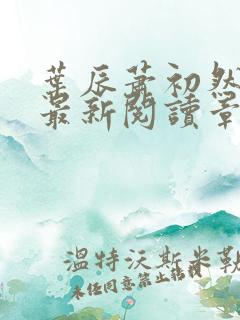 葉辰蕭初然
最新閱讀章
溫特沃斯米勒
未任同意禁止轉載